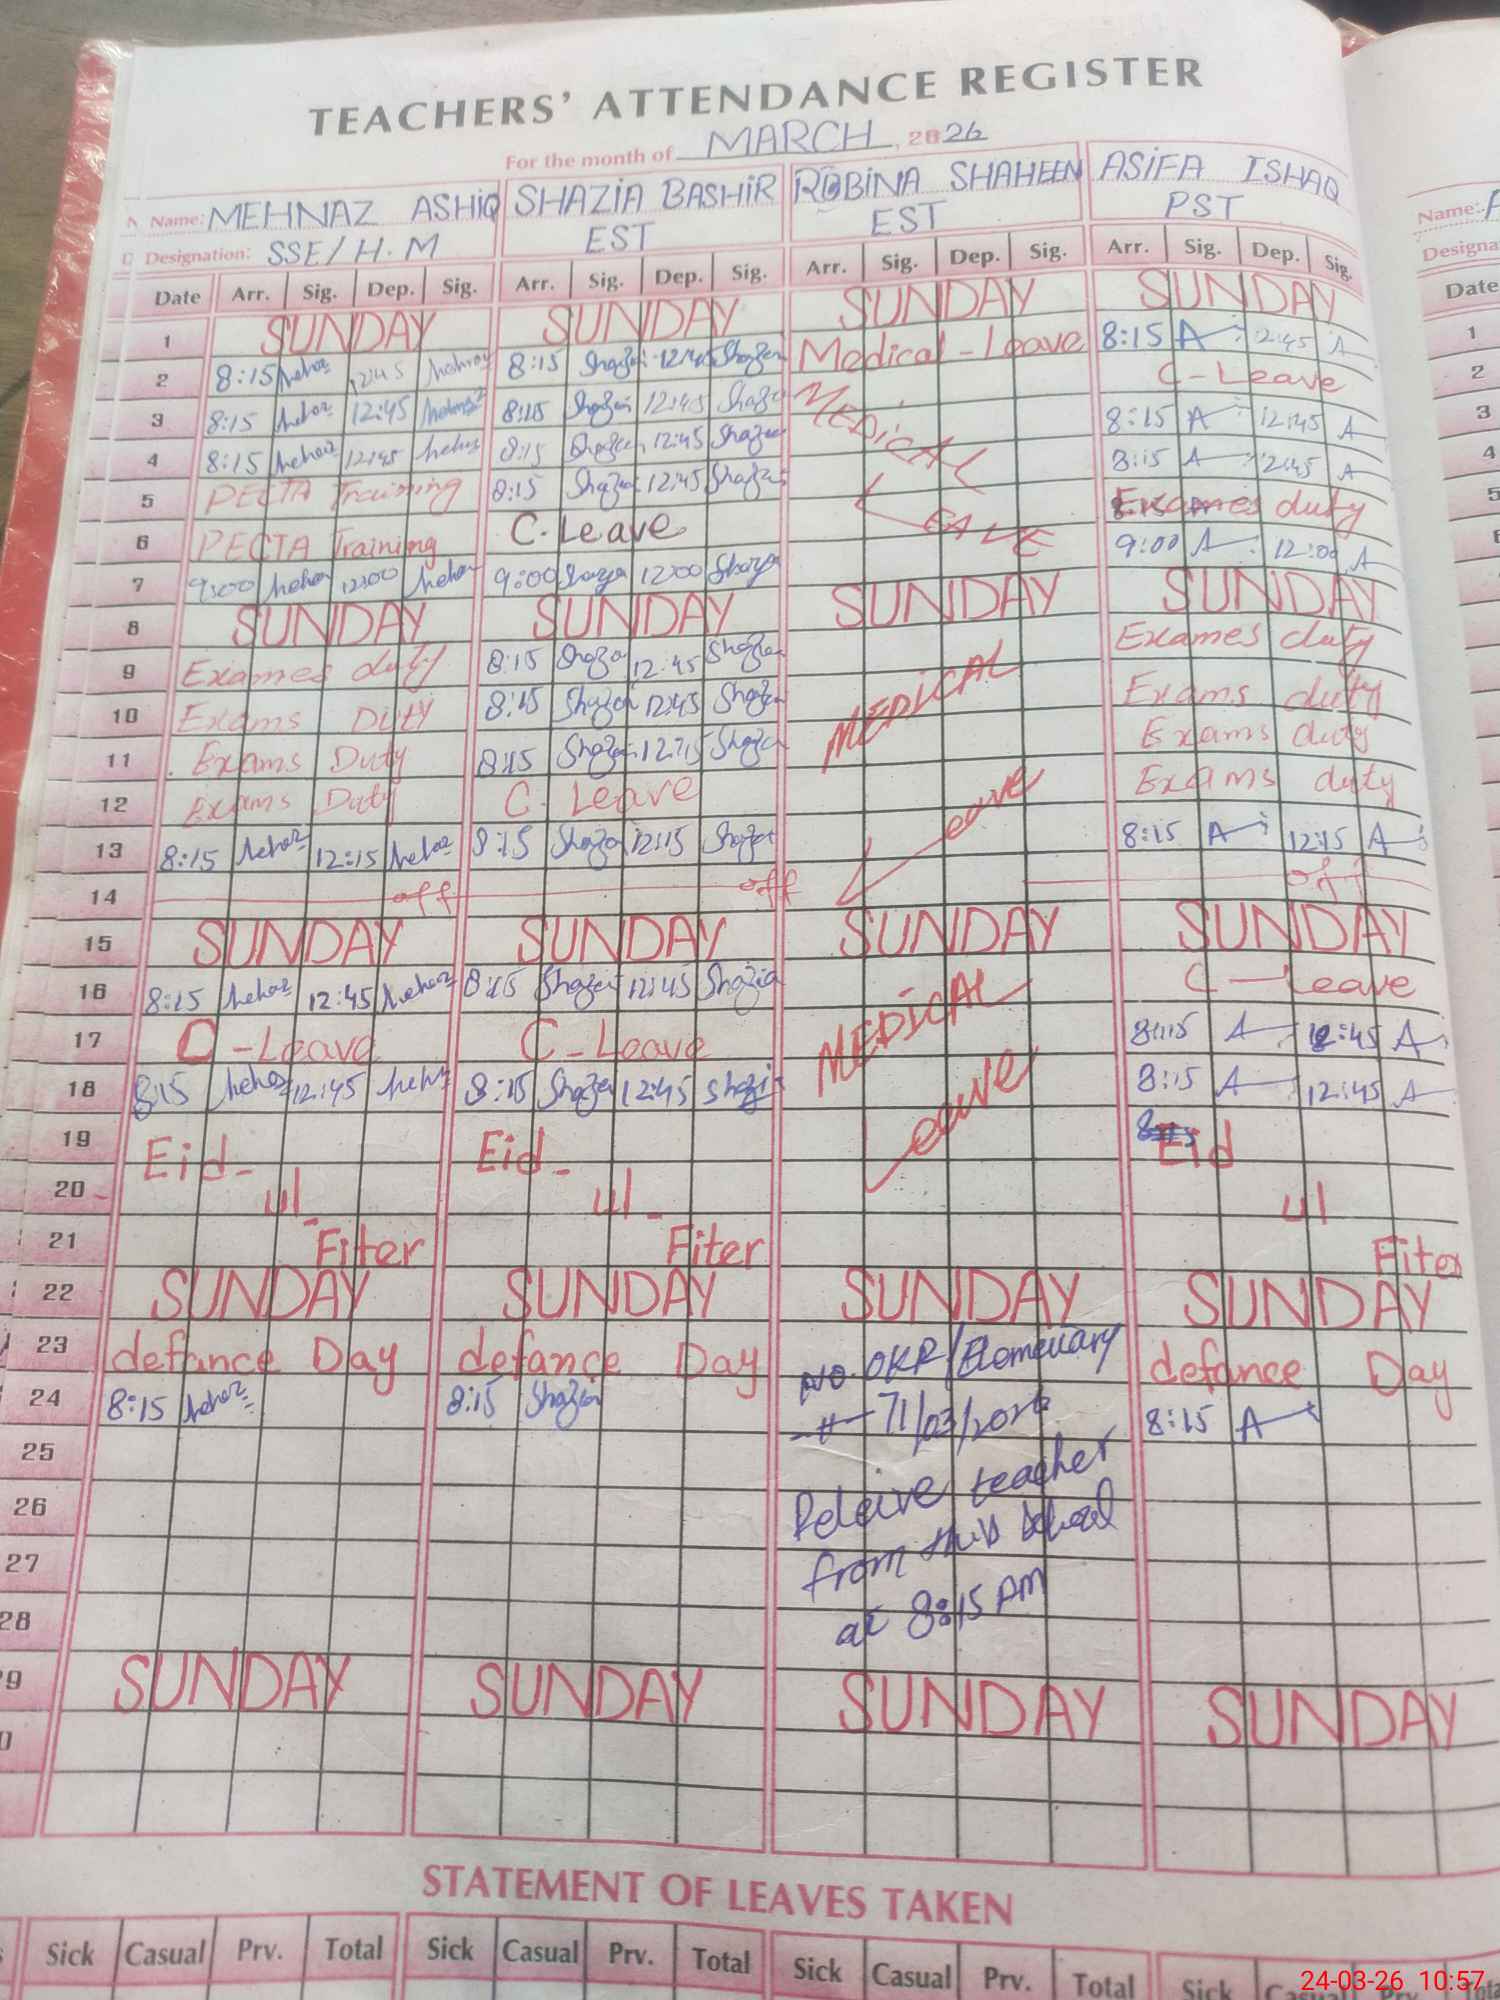 TEACHERS' ATTENDANCE REGISTER
For the month of MARCH, 2026
Name: MEHNAZ ASHIQ SHAZIA BASHIR ROBINA SHAHEEN ASIFA ISHAQ Name:
Designation: SSE/H.M EST EST PST Designa
Date Arr. Sig. Dep. Sig. Arr. Sig. Dep. Sig. Arr. Sig. Dep. Sig. Arr. Sig. Dep. Sig. Date
1 SUNDAY SUNDAY SUNDAY SUNDAY 1
2 8:15 12:45 8:15 12:45 Medical-Leave 8:15 A 12:45 A 2
3 8:15 12:45 8:15 12:45 MEDiCAL C-Leave 3
4 8:15 12:45 8:15 12:45 8:15 A 12:45 A 4
5 PECTA Training 8:15 12:45 8:15 A 12:45 A 5
6 PECTA Training C.Leave LEAVE Exames duty
7 9:00 12:00 9:00 12:00 9:00 A 12:00 A
8 SUNDAY SUNDAY SUNDAY SUNDAY
9 Exames duty 8:15 12:45 Exames duty
10 Exams Duty 8:15 12:45 MEDICAL Exams duty
11 Exams Duty 8:15 Exams duty
12 Exams Duty C. Leave Leave Exams duty
13 8:15 12:15 8:15 12:15 8:15 A 12:15 A
14 off off off
15 SUNDAY SUNDAY SUNDAY SUNDAY
16 8:15 12:45 8:15 12:45 Shazia C-Leave
17 C-Leave C-Leave MEDICAL 8:15 A 12:45 A
18 8:15 12:45 8:15 12:45 Leave 8:15 A 12:45 A
19 Eid- Eid- Eid
20 ul- ul- ul
21 Fiter Fiter Fiter
22 SUNDAY SUNDAY SUNDAY SUNDAY
23 defance Day defance Day No. OKR/Elementary defance Day
24 8:15 8:15 71/03/2026 8:15 A
25 Releive teacher
26 from this school
27 at 8:15 AM
28
9 SUNDAY SUNDAY SUNDAY SUNDAY
0
STATEMENT OF LEAVES TAKEN
Sick Casual Prv. Total Sick Casual Prv. Total Sick Casual Prv. Total Sick Casual Prv. Total
24-03-26 10:57